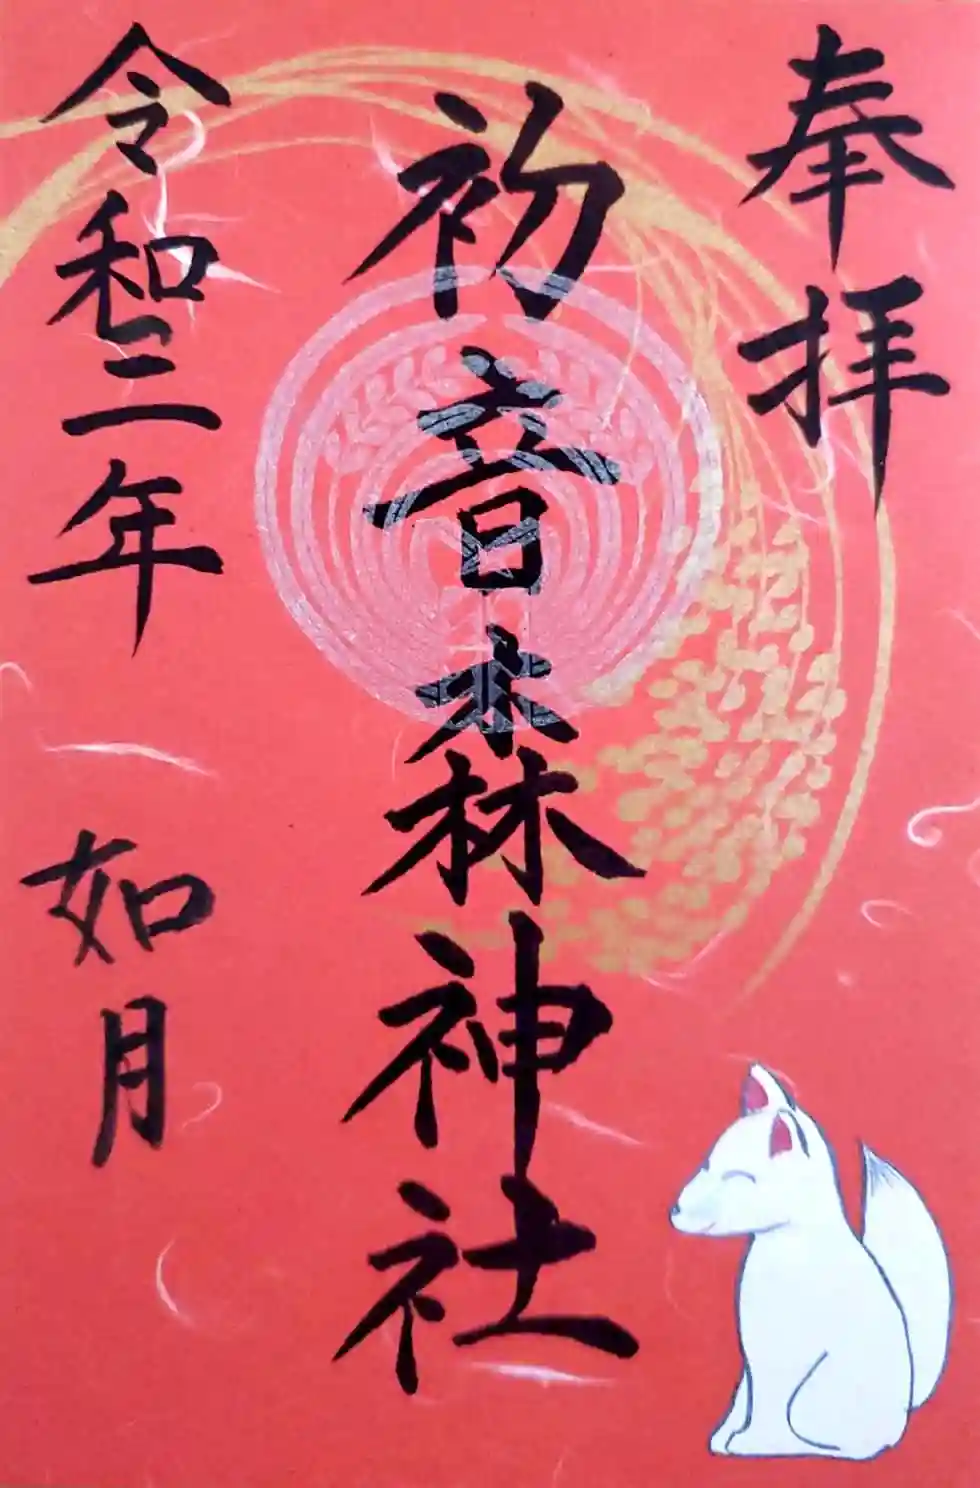 奉拝
初音森神社
令和二年 如月